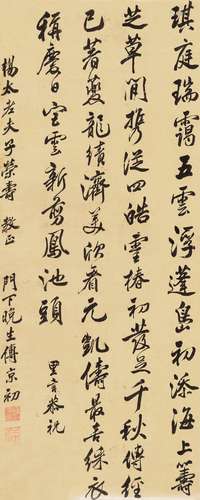 琪庭瑞靄五雲浮蓬島初添海上籌
芝草閒携從四皓靈椿初發足千秋傳經
已著夔龍績濟美欣看元凱儔最喜綵衣
稱慶日空雲新剪鳳池頭 里言恭祝
楊太老夫子榮壽 教正 門下晚生傅京初